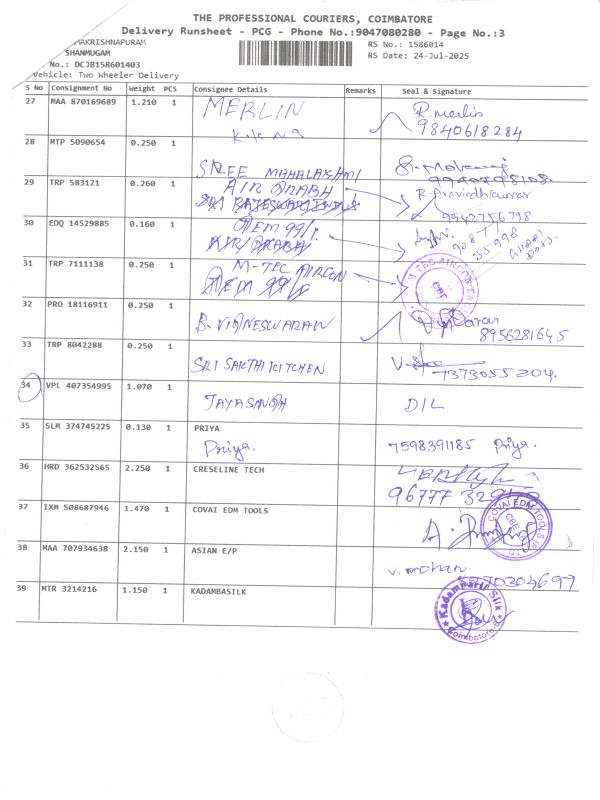 THE PROFESSIONAL COURIERS, COIMBATORE
Delivery Runsheet - PCG - Phone No.:9047080280 - Page No.:3
MAKRISHNAPURAM RS No.: 1586014
SHANMUGAM RS Date: 24-Jul-2025
No.: DCJB158601403
Vehicle: Two Wheeler Delivery
S No Consignment No Weight PCS Consignee Details Remarks Seal & Signature
27 MAA 870169689 1.210 1 MERLIN R. Merlin
9840618284
28 MTP 5090654 0.250 1
SREE MAHALAKHMI
29 TRP 583121 0.260 1 AIR PRABH R. Pravindhkumar
SRI RAJESWARI INDUS 9942756798
30 EDQ 14529885 0.160 1 OEM 99/1
AIR PRABHU
31 TRP 7111138 0.250 1 M-TEC AIRCON
OEM 99/6
32 PRO 18116911 0.250 1
B. VIGNESWARAN
8956281645
33 TRP 8042288 0.250 1
SRI SAKTHI KITCHEN 7373055204.
34 VPL 407354995 1.070 1
JAYASANGH D/L
35 SLM 374745225 0.130 1 PRIYA
Priya. 7598391185 Priya.
36 HRD 362532565 2.250 1 CRESELINE TECH
96777
37 IXM 508687946 1.470 1 COVAI EDM TOOLS
COVAI EDM TOOLS (P) LTD
CBE
38 MAA 707934638 2.150 1 ASIAN E/P
V. Mohan
39 MTR 3214216 1.150 1 KADAMBASILK
Kadambari Silk
Coimbatore